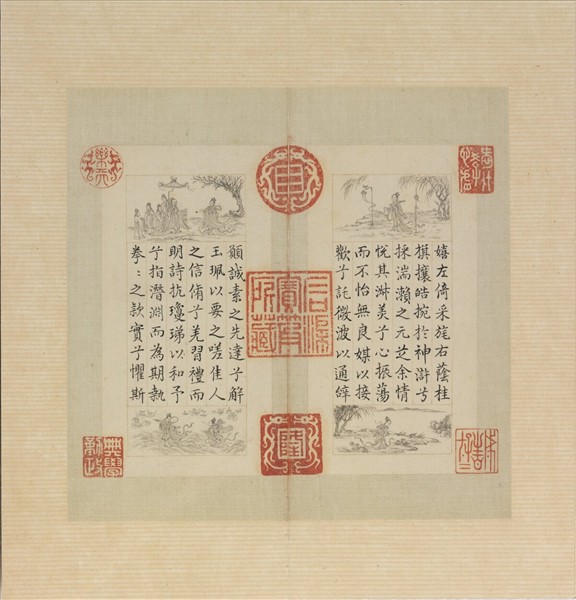 嬉左倚采旄右蔭桂
旗攘皓捥於神滸兮
採湍瀨之元芝余情
悅其淑美兮心振蕩
而不怡無良媒以接
歡兮託微波以通辭
願誠素之先達兮解
玉珮以要之嗟佳人
之信脩兮羌習禮而
明詩抗瓊珶以和予
兮指潛淵而為期執
拳〻之款實兮懼斯
石渠
寶笈
所藏
隆
典學
勤政